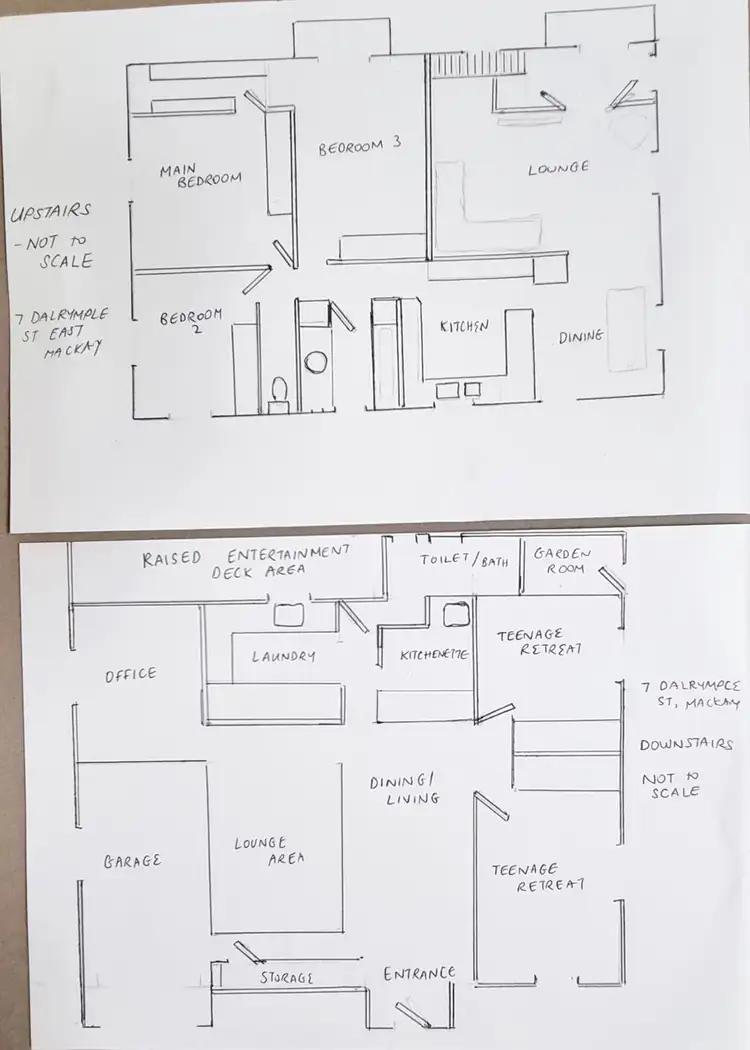 UPSTAIRS
- NOT TO
SCALE
7 DALRYMPLE
ST EAST
MACKAY
MAIN
BEDROOM
BEDROOM 3
LOUNGE
BEDROOM
2
KITCHEN
DINING
RAISED ENTERTAINMENT
DECK AREA
TOILET/BATH
GARDEN
ROOM
OFFICE
LAUNDRY
KITCHENETTE
TEENAGE
RETREAT
7 DALRYMPLE
ST, MACKAY
DOWNSTAIRS
NOT TO
SCALE
DINING/
LIVING
GARAGE
LOUNGE
AREA
TEENAGE
RETREAT
STORAGE
ENTRANCE